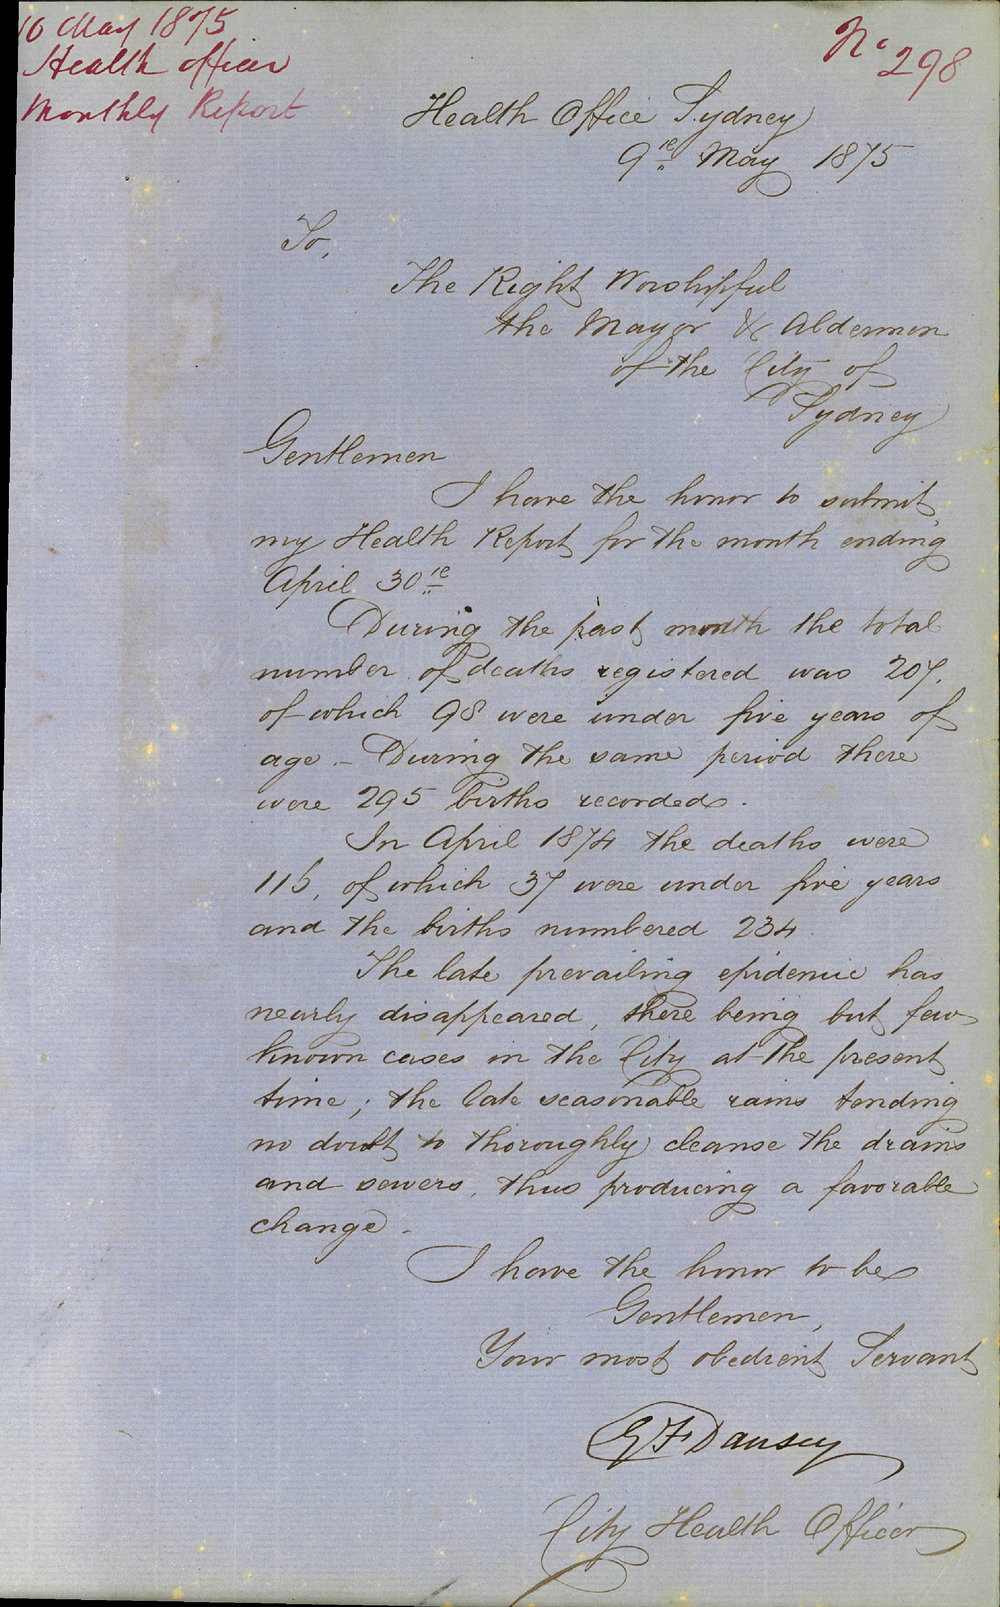 10 May 1875
Health officer
Monthly Report
No 298
Health Office Sydney
9th May 1875
To,
The Right Worshipful
the Mayor & Aldermen
of the City of
Sydney
Gentlemen
I have the honor to submit
my Health Report for the month ending
April 30th
During the past month the total
number of deaths registered was 207,
of which 98 were under five years of
age – During the same period there
were 295 births recorded.
In April 1874 the deaths were
116, of which 37 were under five years
and the births numbered 234.
The late prevailing epidemic has
nearly disappeared, there being but few
known cases in the City at the present
time; the late seasonable rains tending
no doubt to thoroughly cleanse the drains
and sewers, thus producing a favorable
change –
I have the honor to be
Gentlemen,
Your most obedient Servant
G F Dansey
City Health Officer